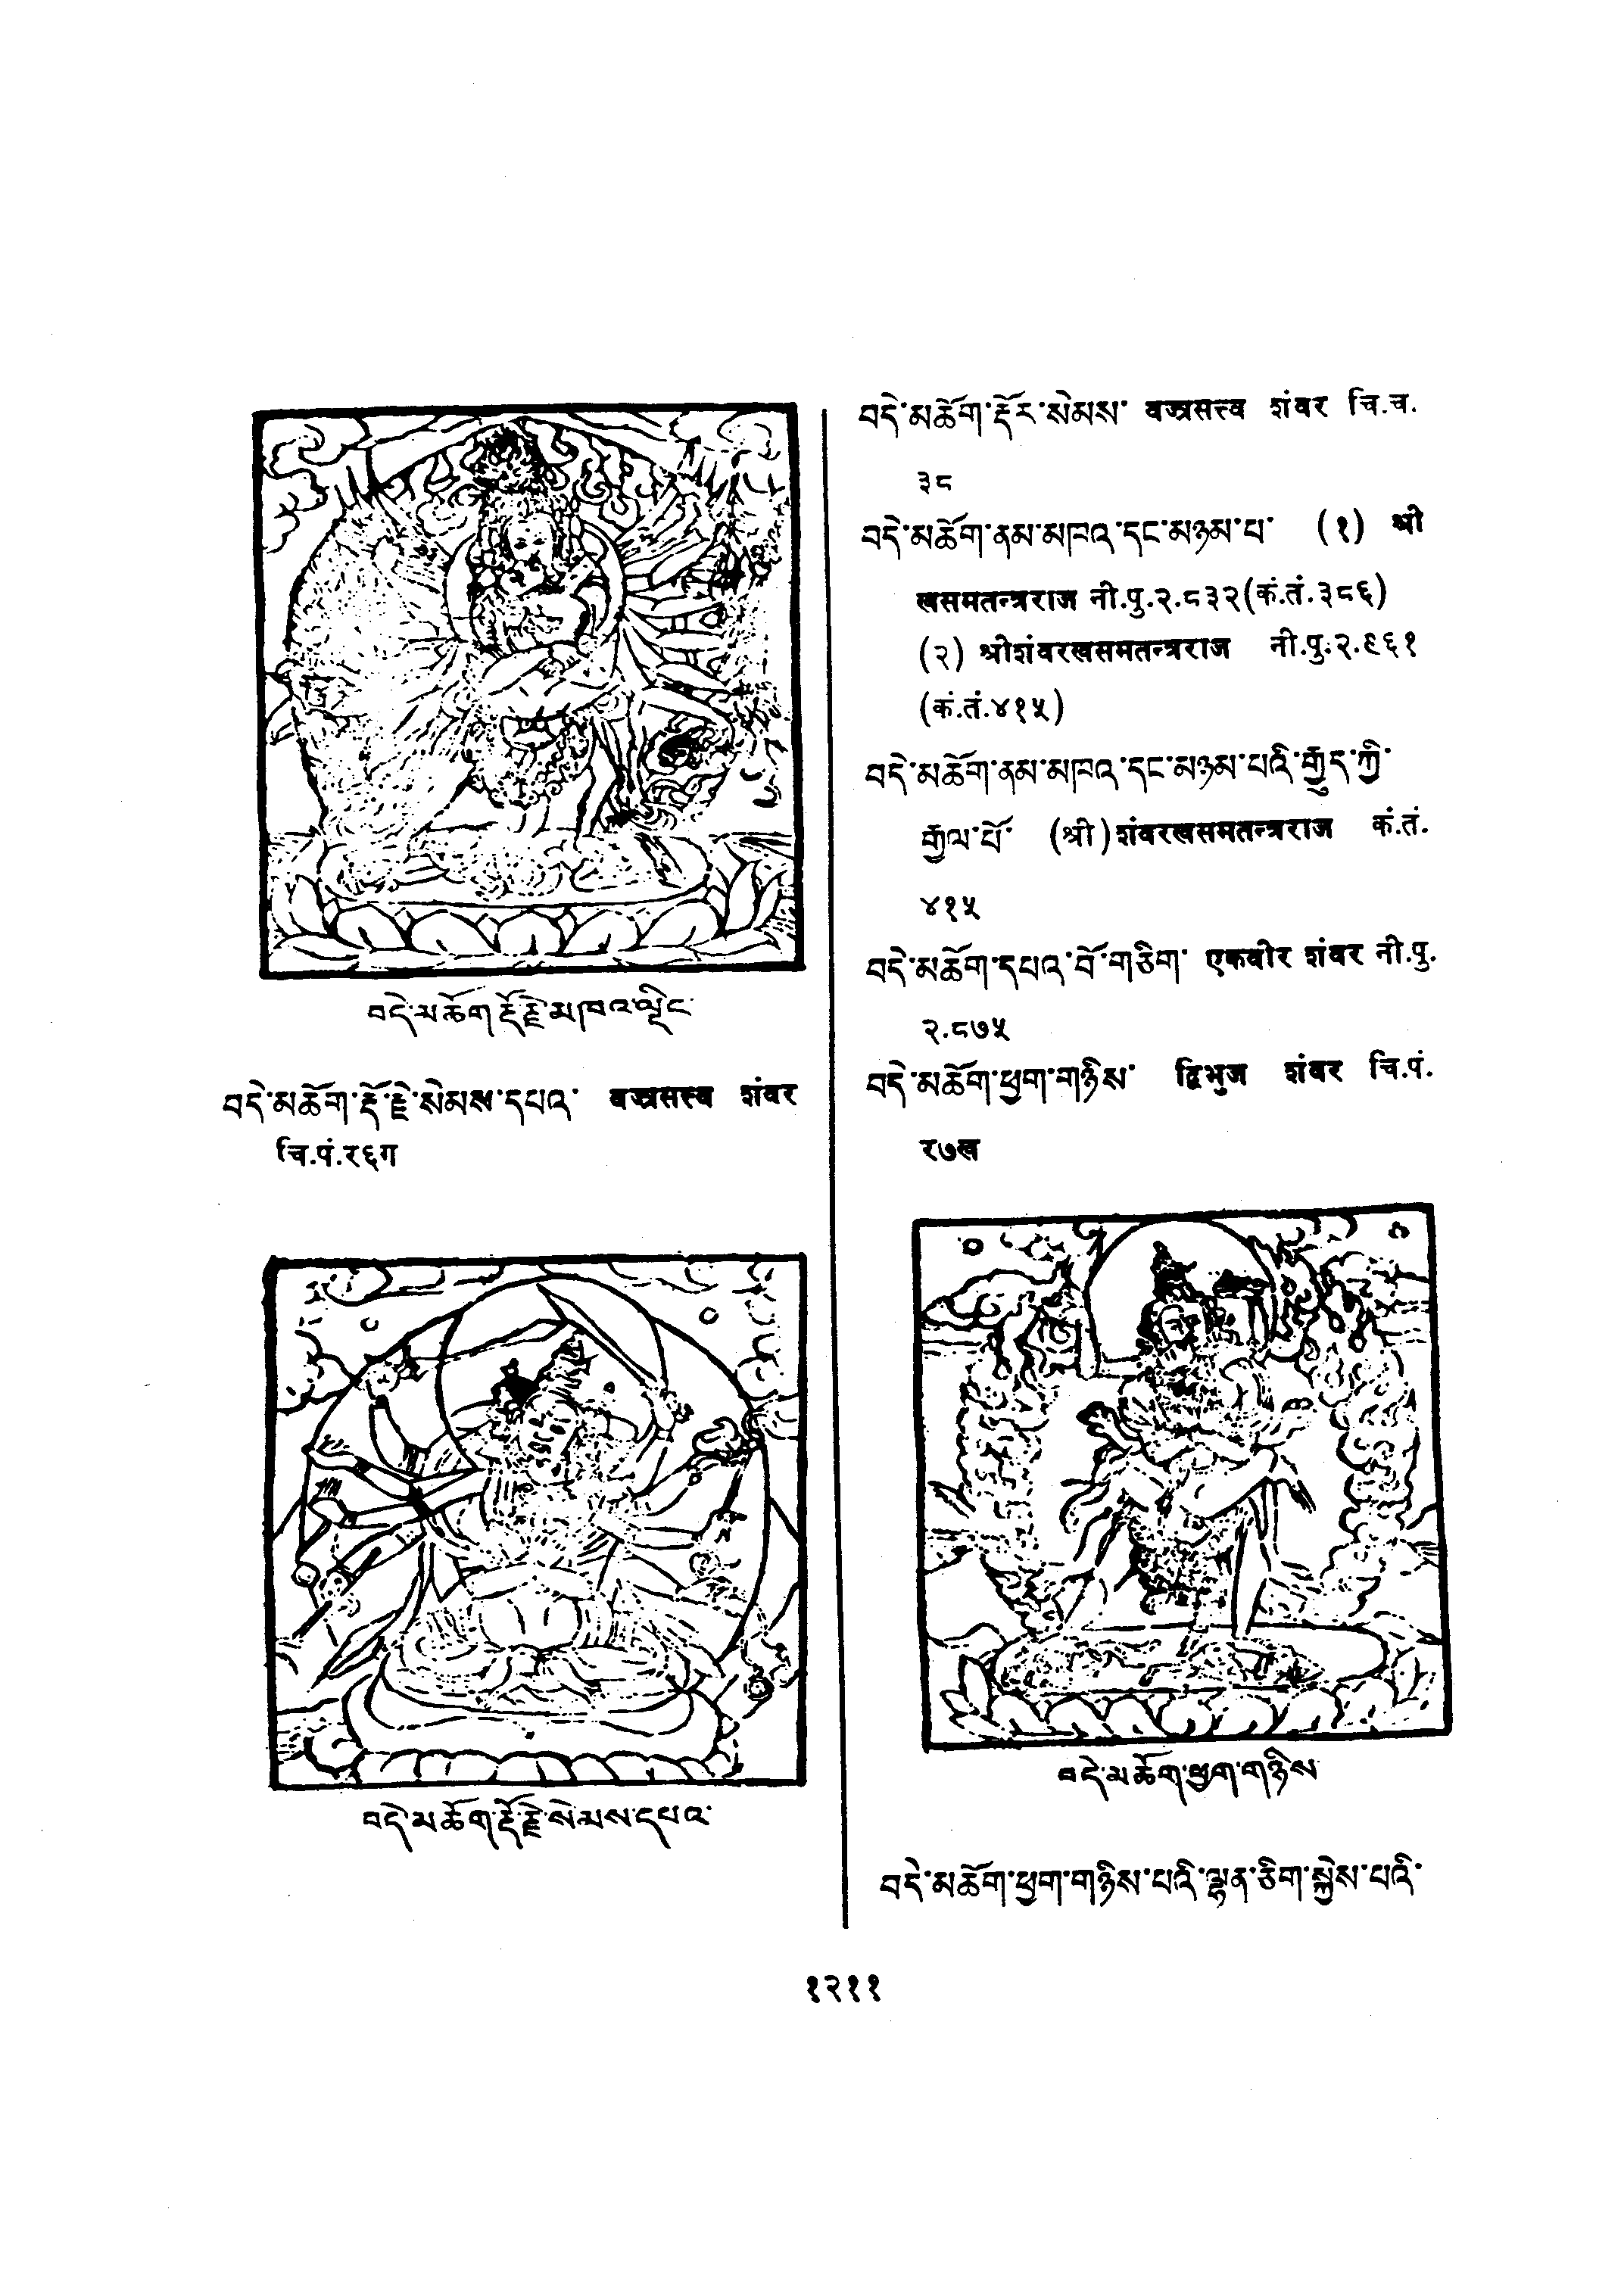 བདེ་མཆོག་རྡོ་རྗེ་མཁའ་ལྡིང
བདེ་མཆོག་རྡོ་རྗེ་སེམས་དཔའ་ वज्रसत्त्व शंवर
चि.पं.र६ग
བདེ་མཆོག་རྡོ་རྗེ་སེམས་དཔའ་
བདེ་མཆོག་རྡོར་སེམས་ वज्रसत्त्व शंवर चि.च.
३८
བདེ་མཆོག་ནམ་མཁའ་དང་མཉམ་པ་ (१) श्री
खसमतन्त्रराज नी.पु.२.८३२(कं.तं.३८६)
(२) श्रीशंवरखसमतन्त्रराज नी.पु.२.९६१
(कं.तं.४१५)
བདེ་མཆོག་ནམ་མཁའ་དང་མཉམ་པའི་རྒྱུད་ཀྱི་
རྒྱལ་པོ་ (श्री)शंवरखसमतन्त्रराज कं.तं.
४१५
བདེ་མཆོག་དཔའ་བོ་གཅིག་ एकवीर शंवर नी.पु.
२.८७५
བདེ་མཆོག་ཕྱག་གཉིས་ द्विभुज शंवर चि.पं.
र७ख
བདེ་མཆོག་ཕྱག་གཉིས
བདེ་མཆོག་ཕྱག་གཉིས་པའི་ལྷན་ཅིག་སྐྱེས་པའི་
१२११